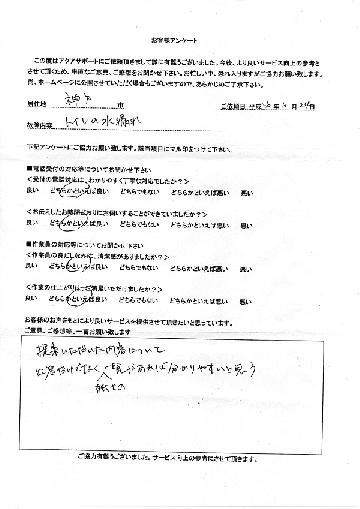 お客様アンケート
この度はアクアサポートにご依頼頂きまして誠に有難うございました。今後、より良いサービス向上の参考と
させて頂くため、率直なご意見、ご感想をお聞かせ下さい。お忙しい中、恐れ入りますがご協力お願い致します。
尚、ホームページに公開させていただく場合もございますので、あらかじめご了承下さい。
居住地 市 ご依頼日 平成 年 月 日
故障内容 トイレの水漏れ
下記アンケートにご協力お願い致します。該当項目にマル印をつけて下さい。
■電話受付の対応等についてお聞かせ下さい
<受付の電話対応は、わかりやすく丁寧な対応でしたか?>
良い どちらかといえば良い どちらでもない どちらかといえば悪い 悪い
<お伝えしたお時間どおりにお伺いすることができていましたか?>
良い どちらかといえば良い どちらでもない どちらかといえば悪い 悪い
■作業員の対応等についてお聞かせ下さい
<作業員の身だしなみに、清潔感がありましたか?>
良い どちらかといえば良い どちらでもない どちらかといえば悪い 悪い
<作業の仕上がりはご満足いただけましたか?>
良い どちらかといえば良い どちらでもない どちらかといえば悪い 悪い
お客様のお声をもとにより良いサービスを提供させて頂きたいと思っています。
ご意見、ご感想等、一言お願い致します
提案いただいた内容について
だけでなく があれば分かりやすいと思う
ご協力有難うございました。サービス向上の参考にさせて頂きます。